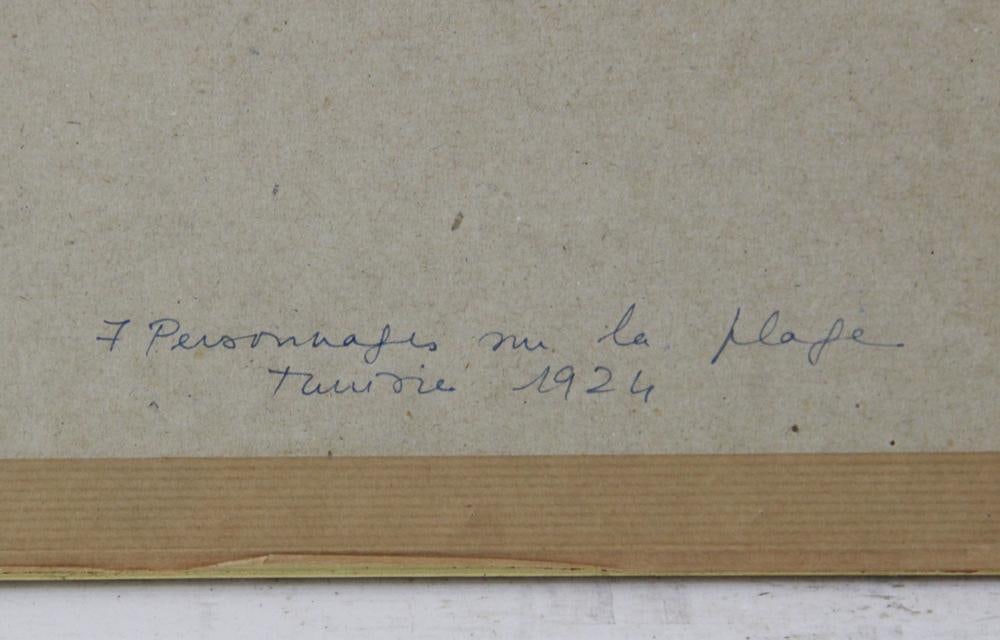 7 Personnages sur la plage
Tunisie 1924